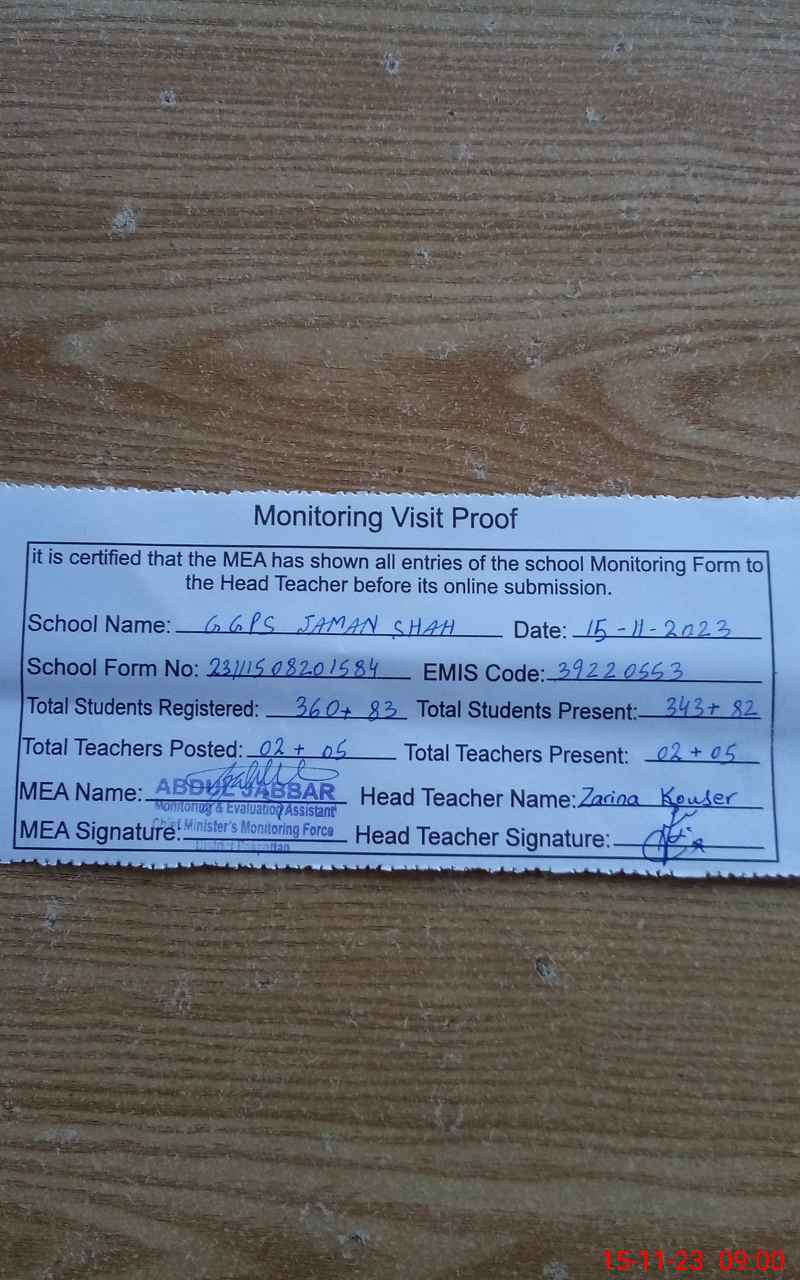 Monitoring Visit Proof
it is certified that the MEA has shown all entries of the school Monitoring Form to
the Head Teacher before its online submission.
School Name: GGPS JAMAN SHAH Date: 15-11-2023
School Form No: 23111508201584 EMIS Code: 39220553
Total Students Registered: 360+ 83 Total Students Present: 343+ 82
Total Teachers Posted: 02 + 05 Total Teachers Present: 02 + 05
MEA Name: ABDUL JABBAR Head Teacher Name: Zarina Kouser
Monitoring & Evaluation Assistant
MEA Signature: Chief Minister's Monitoring Force Head Teacher Signature:
District
15-11-23 09:00